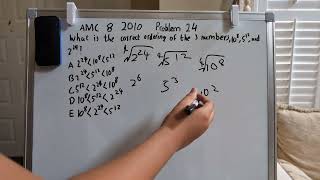 AMC 8 2010 Problem 24
What is the correct ordering of the 3 numbers, 10⁸, 5¹², and
2²⁴?
A. 2²⁴<10⁸<5¹²
B. 2²⁴<5¹²<10⁸
C. 5¹²<2²⁴<10⁸
D. 10⁸<5¹²<2²⁴
E. 10⁸<2²⁴<5¹²
⁴√2²⁴ ⁴√5¹² ⁴√10⁸
2⁶ 5³ 10²